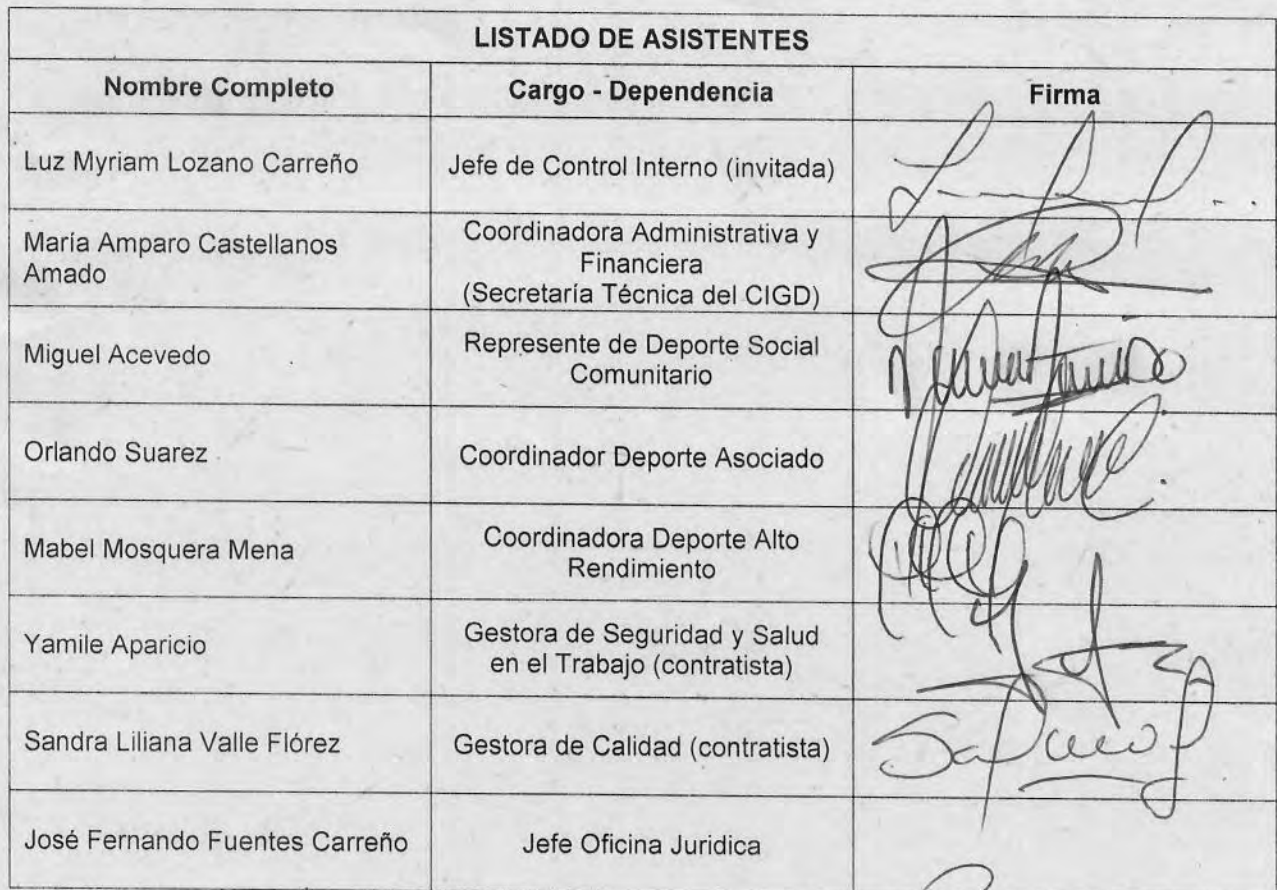 LISTADO DE ASISTENTES
Nombre Completo
Cargo - Dependencia
Firma
Luz Myriam Lozano Carreño
Jefe de Control Interno (invitada)
María Amparo Castellanos
Amado
Coordinadora Administrativa y
Financiera
(Secretaría Técnica del CIGD)
Miguel Acevedo
Represente de Deporte Social
Comunitario
Orlando Suarez
Coordinador Deporte Asociado
Mabel Mosquera Mena
Coordinadora Deporte Alto
Rendimiento
Yamile Aparicio
Gestora de Seguridad y Salud
en el Trabajo (contratista)
Sandra Liliana Valle Flórez
Gestora de Calidad (contratista)
José Fernando Fuentes Carreño
Jefe Oficina Juridica